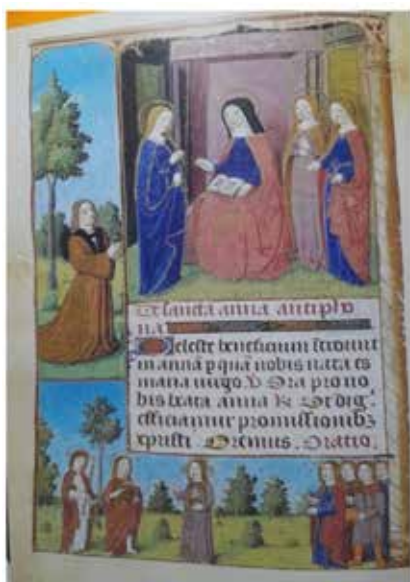 De sancta anna antipho
na
Celeste beneficium introivit
in anna p quā nobis nata es
maria virgo. V Ora pro no
bis beata anna R Ut dig
efficiamur promissionibȝ
xpristi. Oremus. Oratio.